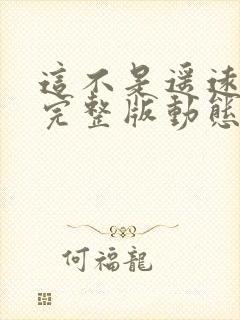 這不是遥速
完整版動態
何福龍